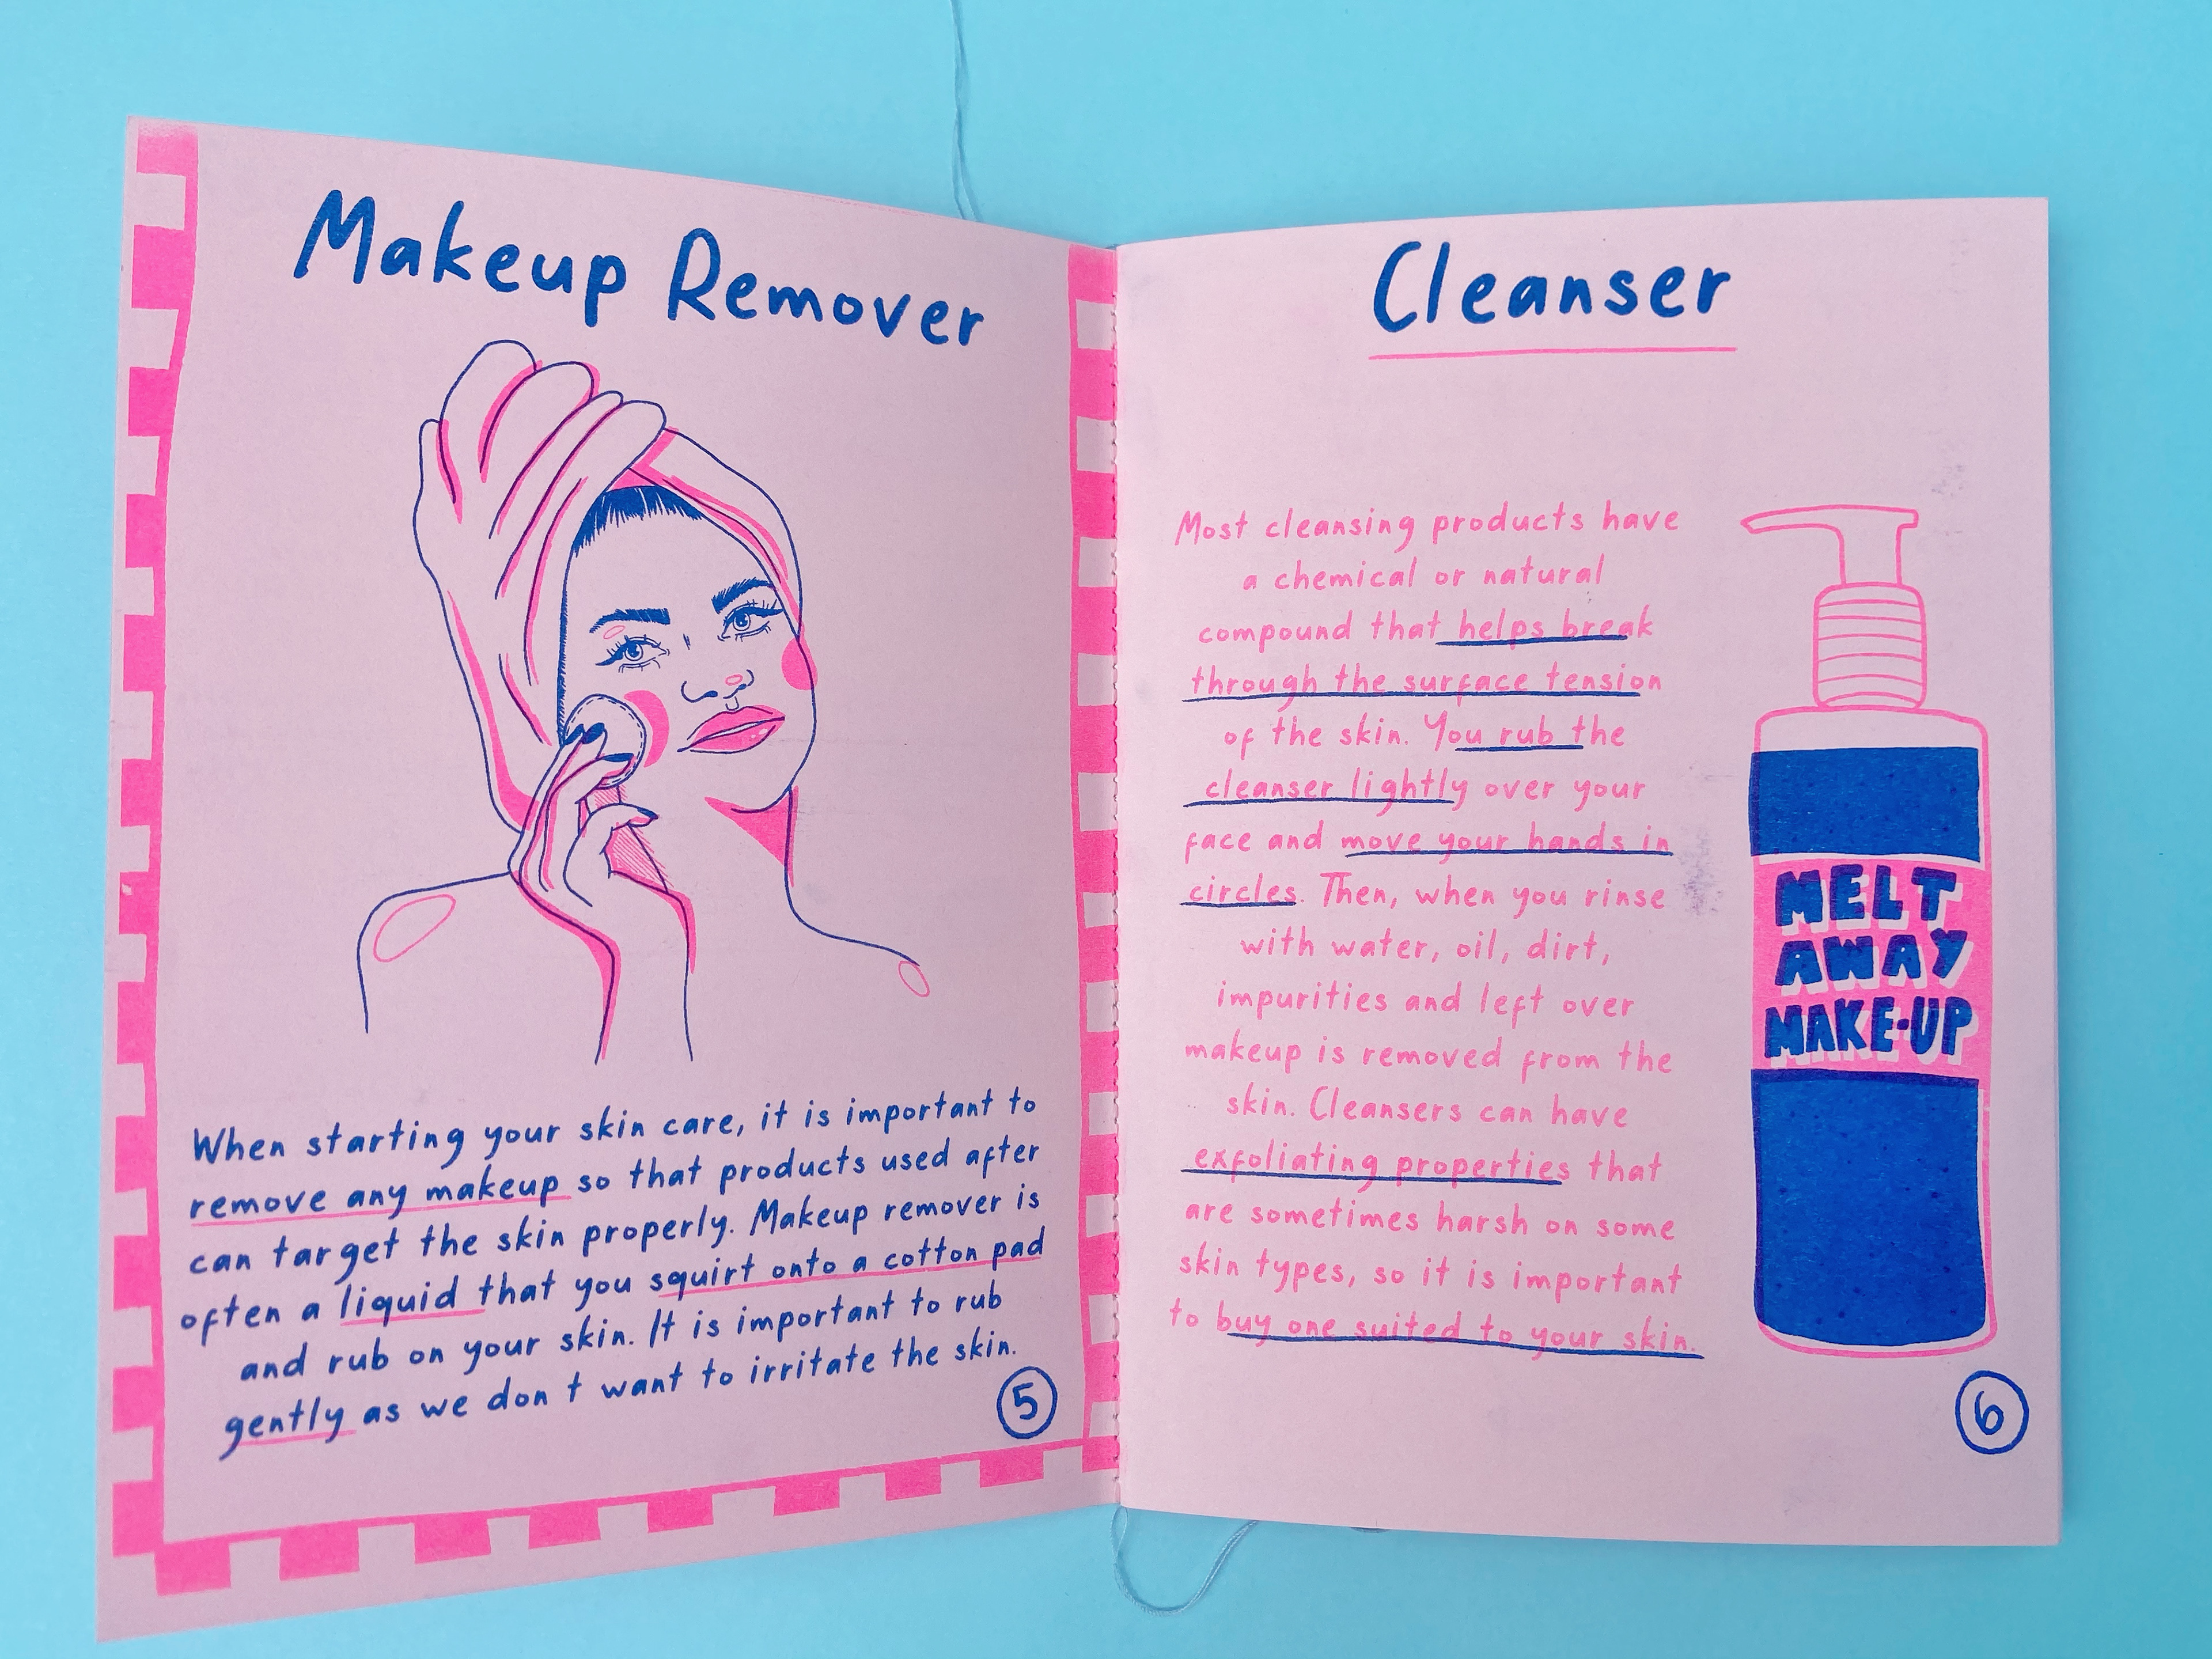 Makeup Remover
When starting your skin care, it is important to
remove any makeup so that products used after
can target the skin properly. Makeup remover is
often a liquid that you squirt onto a cotton pad
and rub on your skin. It is important to rub
gently as we don t want to irritate the skin.
5
Cleanser
Most cleansing products have
a chemical or natural
compound that helps break
through the surface tension
of the skin. You rub the
cleanser lightly over your
face and move your hands in
circles. Then, when you rinse
with water, oil, dirt,
impurities and left over
makeup is removed from the
skin. Cleansers can have
exfoliating properties that
are sometimes harsh on some
skin types, so it is important
to buy one suited to your skin.
MELT
AWAY
MAKE-UP
6